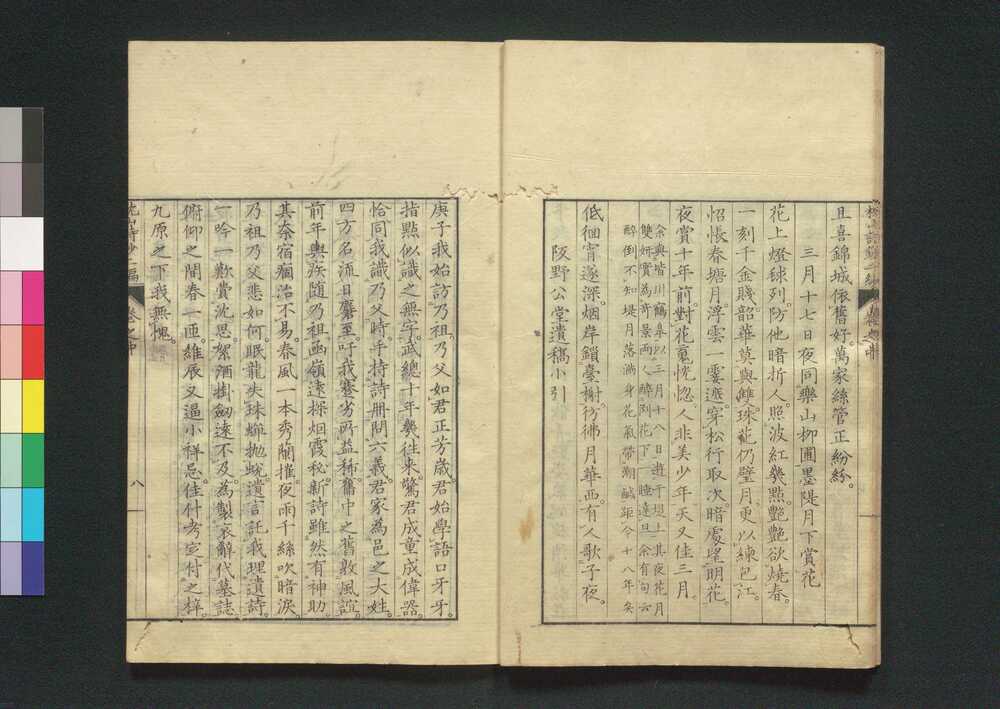 且喜錦城依舊好。萬家絲管正紛紛。
三月十七日夜同藥山柳圃墨隄月下賞花
花上燈毬列。防他暗折人。照波紅幾點。艷艷欲燒春。
一刻千金賤。韶華莫與雙。珠花仍璧月。更以練包江。
怊悵春塘月。浮雲一霎遮。穿松行取次。暗處望明花。
夜賞十年前。對花裏恍惚。人非美少年。天又佳三月。
余與皆川鶴皋以三月十八日遊于堤上其夜花月
雙妍實為奇景兩人醉到花下一睡達旦余有句云
醉倒不知堤月落滿身花氣帶潮鹹距今十八年矣
低徊宵遂深。烟岸鎖臺榭。彷彿月華西。有人歌子夜。
阪野公堂遺稿小引
庚子我始訪乃祖。乃父如君正芳歲。君始學語口牙牙。
指點似識之無字。武總十年幾往來。驚君成童成偉器。
恰同我識乃父時。手持詩冊問六義。君家為邑之大姓。
四方名流日麕至。吁我蹇劣所益稀。舊中之舊敦風誼。
前年輿疾隨乃祖。函嶺遠探烟霞秘。新詩雖然有神助。
其奈宿痾治不易。春風一本秀蘭摧。夜雨千絲吹暗淚。
乃祖乃父悲如何。眠龍失珠蟬拋蛻。遺言託我理遺詩。
一吟一歎賞沈思。絮酒掛劍遠不及。為製哀辭代墓誌。
俯仰之間春一匝。維辰又逼小祥忌。佳什考定付之梓。
九原之下我無愧。
八